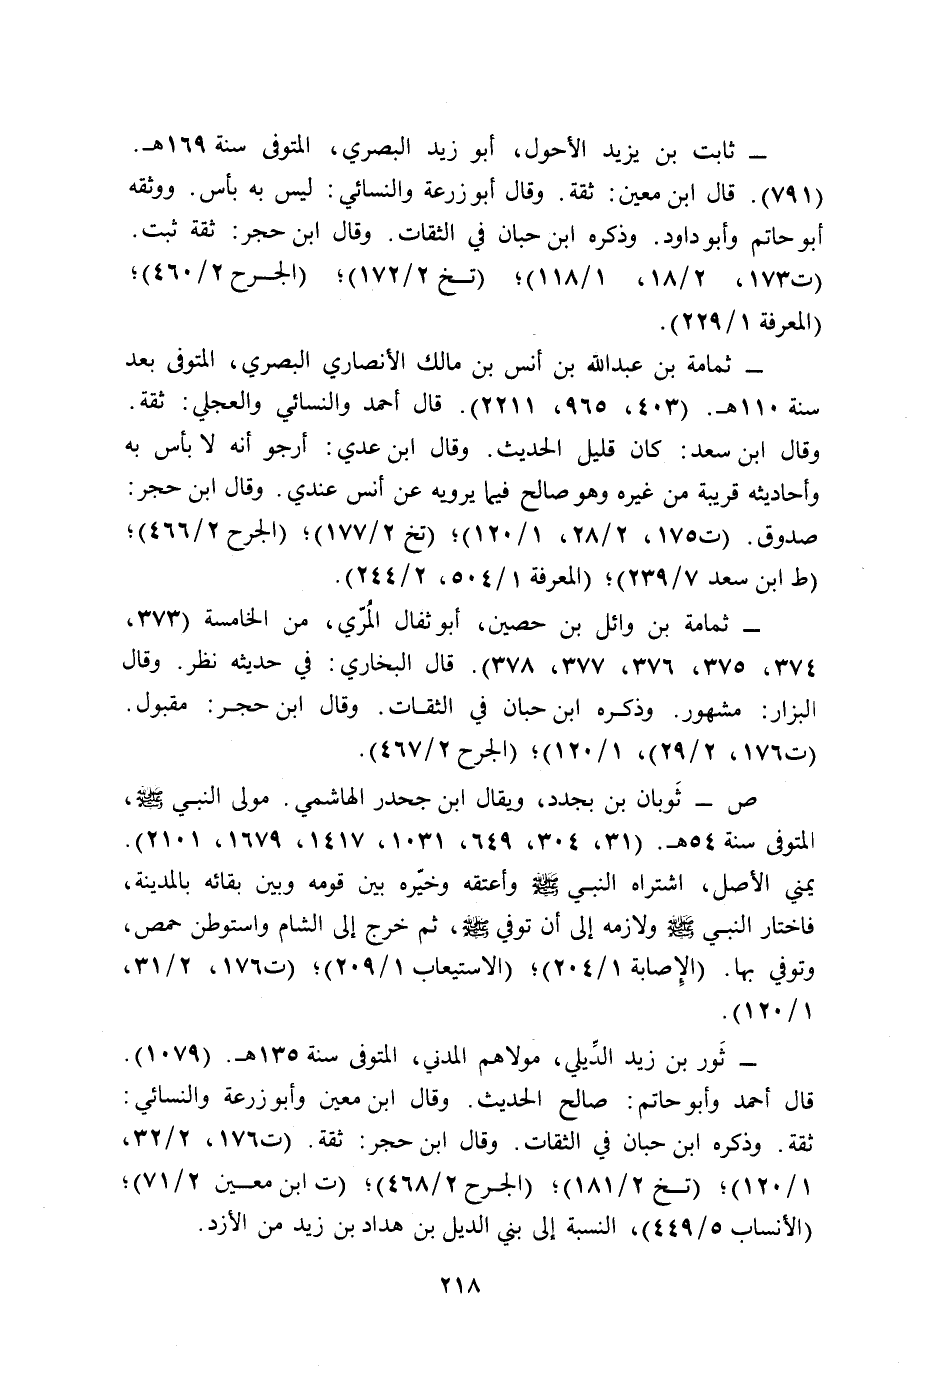 ــ ثابت بن يزيد الأحول، أبو زيد البصري، المتوفى سنة ١٦٩هـ.
(٧٩١). قال ابن معين: ثقة. وقال أبو زرعة والنسائي: ليس به بأس. ووثقه
أبو حاتم وأبو داود. وذكره ابن حبان في الثقات. وقال ابن حجر: ثقة ثبت.
(ت١٧٣، ١٨/٢، ١١٨/١)؛ (تخ ١٧٢/٢)؛ (الجرح ٤٦٠/٢)؛
(المعرفة ٢٢٩/١).
ــ ثمامة بن عبدالله بن أنس بن مالك الأنصاري البصري، المتوفى بعد
سنة ١١٠هـ. (٤٠٣، ٩٦٥، ٢٢١١). قال أحمد والنسائي والعجلي: ثقة.
وقال ابن سعد: كان قليل الحديث. وقال ابن عدي: أرجو أنه لا بأس به
وأحاديثه قريبة من غيره وهو صالح فيما يرويه عن أنس عندي. وقال ابن حجر:
صدوق. (ت١٧٥، ٢٨/٢، ١٢٠/١)؛ (تخ ١٧٧/٢)؛ (الجرح ٤٦٦/٢)؛
(ط ابن سعد ٢٣٩/٧)؛ (المعرفة ٥٠٤/١، ٢٤٤/٢).
ــ ثمامة بن وائل بن حصين، أبو ثفال المُرّي، من الخامسة (٣٧٣،
٣٧٤، ٣٧٥، ٣٧٦، ٣٧٧، ٣٧٨). قال البخاري: في حديثه نظر. وقال
البزار: مشهور. وذكره ابن حبان في الثقات. وقال ابن حجر: مقبول.
(ت١٧٦، ٢٩/٢)، ١٢٠/١)؛ (الجرح ٤٦٧/٢).
ص ــ ثَوبان بن بجدد، ويقال ابن جحدر الهاشمي. مولى النبي ﷺ،
المتوفى سنة ٥٤هـ. (٣١، ٣٠٤، ٦٤٩، ١٠٣١، ١٤١٧، ١٦٧٩، ٢١٠١).
يمني الأصل، اشتراه النبي ﷺ وأعتقه وخيّره بين قومه وبين بقائه بالمدينة،
فاختار النبي ﷺ ولازمه إلى أن توفي ﷺ، ثم خرج إلى الشام واستوطن حمص،
وتوفي بها. (الإصابة ٢٠٤/١)؛ (الاستيعاب ٢٠٩/١)؛ (ت١٧٦، ٣١/٢،
١٢٠/١).
ــ ثَور بن زيد الدِّيلي، مولاهم المدني، المتوفى سنة ١٣٥هـ. (١٠٧٩).
قال أحمد وأبو حاتم: صالح الحديث. وقال ابن معين وأبو زرعة والنسائي:
ثقة. وذكره ابن حبان في الثقات. وقال ابن حجر: ثقة. (ت١٧٦، ٣٢/٢،
١٢٠/١)؛ (تخ ١٨١/٢)؛ (الجرح ٤٦٨/٢)؛ (ت ابن معين ٧١/٢)؛
(الأنساب ٤٤٩/٥)، النسبة إلى بني الديل بن هداد بن زيد من الأزد.
٢١٨